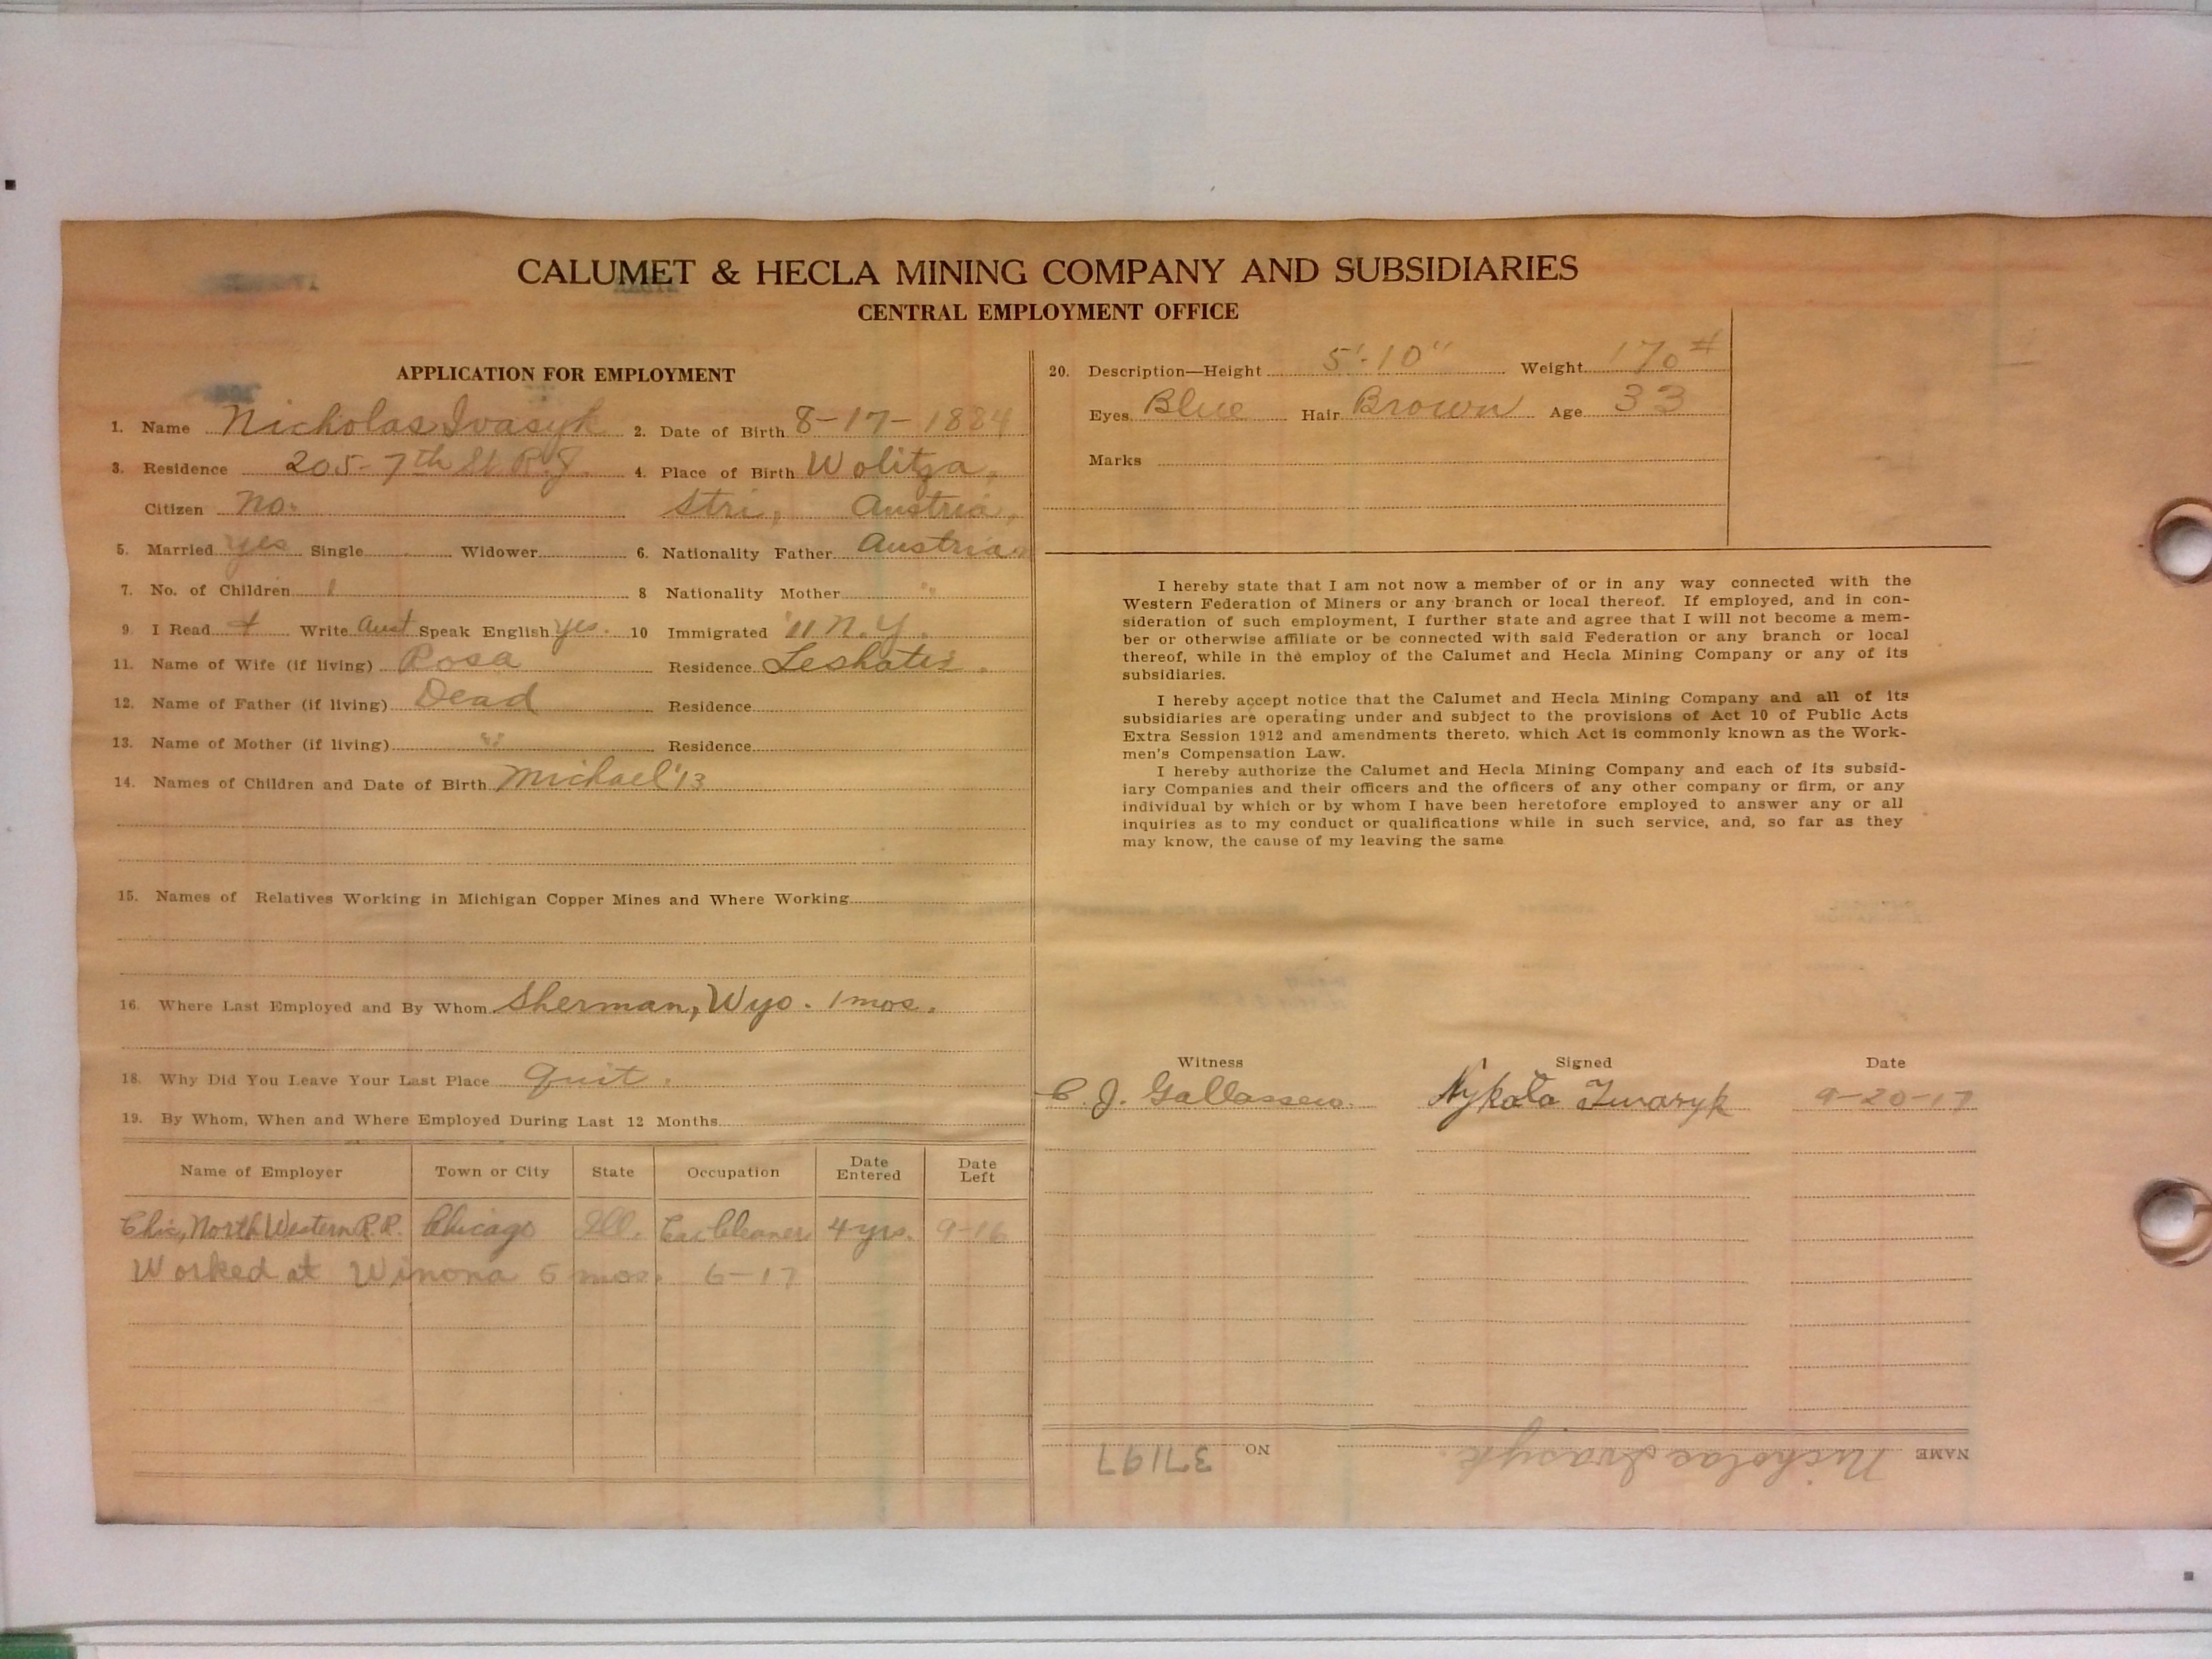 CALUMET & HECLA MINING COMPANY AND SUBSIDIARIES
CENTRAL EMPLOYMENT OFFICE
APPLICATION FOR EMPLOYMENT
1. Name Nicholas Ivasyk 2. Date of Birth 8-17-1884
3. Residence 205-7th St. 4. Place of Birth Wolitza,
Citizen No. Stri, Austria,
5. Married yes Single Widower 6. Nationality Father Austrian
7. No. of Children 1 8 Nationality Mother "
9. I Read + Write Aust Speak English yes. 10 Immigrated '11 N.Y.
11. Name of Wife (if living) Rosa Residence
12. Name of Father (if living) Dead Residence
13. Name of Mother (if living) " Residence
14. Names of Children and Date of Birth Michael '13
15. Names of Relatives Working in Michigan Copper Mines and Where Working
16. Where Last Employed and By Whom Sherman, Wyo. 1 mos.
18. Why Did You Leave Your Last Place Quit.
19. By Whom, When and Where Employed During Last 12 Months
Name of Employer Town or City State Occupation Date Entered Date Left
Chic, North Western R.R. Chicago Ill. Car Cleaner 4 yrs. 9-16
Worked at Winona 6 mos. 6-17
20. Description—Height 5'-10" Weight 170#
Eyes Blue Hair Brown Age 33
Marks
I hereby state that I am not now a member of or in any way connected with the
Western Federation of Miners or any branch or local thereof. If employed, and in con-
sideration of such employment, I further state and agree that I will not become a mem-
ber or otherwise affiliate or be connected with said Federation or any branch or local
thereof, while in the employ of the Calumet and Hecla Mining Company or any of its
subsidiaries.
I hereby accept notice that the Calumet and Hecla Mining Company and all of its
subsidiaries are operating under and subject to the provisions of Act 10 of Public Acts
Extra Session 1912 and amendments thereto, which Act is commonly known as the Work-
men's Compensation Law.
I hereby authorize the Calumet and Hecla Mining Company and each of its subsid-
iary Companies and their officers and the officers of any other company or firm, or any
individual by which or by whom I have been heretofore employed to answer any or all
inquiries as to my conduct or qualifications while in such service, and, so far as they
may know, the cause of my leaving the same
Witness Signed Date
C. J. Nykola Iwasyk 9-20-17
NAME Nicholas Ivasyk. NO 37197